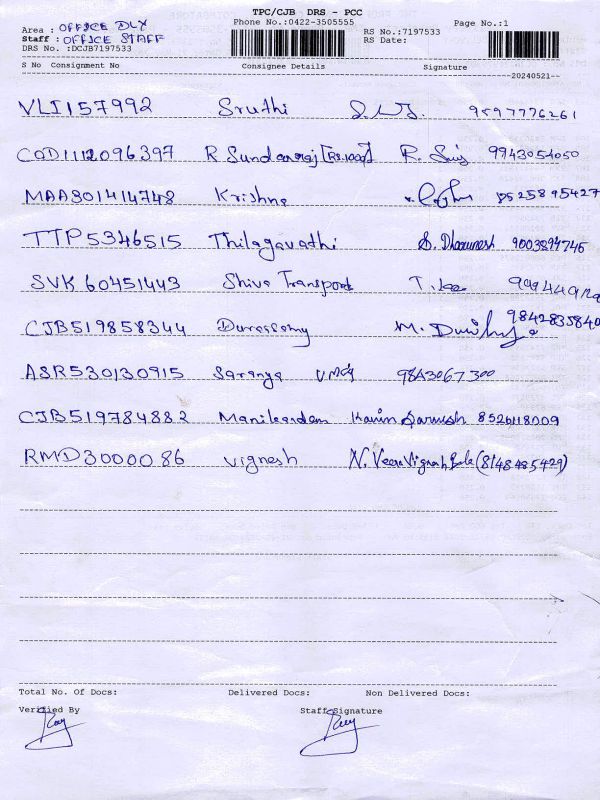 TPC/CJB DRS - PCC
Phone No.:0422-3505555
Page No.:1
Area : OFFICE DLY
Staff : OFFICE STAFF
DRS No. :DCJB7197533
RS No.:7197533
RS Date:
S No Consignment No Consignee Details Signature
20240521--
VLI157992 Sruthi 9597776261
COD1112096397 R. Sundarraj [Rs.1000] 9943054050
MAA801414748 Krishna 9525895427
TTP5346515 Thilagavathi 9003894745
SVK 60451443 Shiva Transport
CJB519858344 Duraisamy 9842835840
ASR530130915 Saranya 9843067300
CJB519784882 Manikandan 8526118009
RMD3000086 Vignesh (8148485429)
Total No. Of Docs: Delivered Docs: Non Delivered Docs:
Verified By Staff Signature